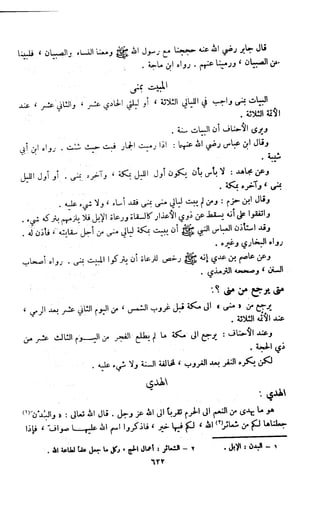 قال جابر رضي الله عنه حججنا مع رسول الله ﷺ ومعنا النساء والصبيان ، فلبينا
عن الصبيان ، ورمينا عنهم . رواه ابن ماجة .
المبيت بمنى
البيات بمنى واجب في الليالي الثلاثة ، أو ليلتي الحادي عشر ، والثاني عشر ، عند
الأئمة الثلاثة .
ويرى الأحناف أن البيات سنة .
وقال ابن عباس رضي الله عنهما : اذا رميت الجمار فبت حيث شئت . رواه ابن أبي
شيبة .
وعن مجاهد : لا بأس بأن يكون أول الليل بمكة ، وآخره بمنى . أو أول الليل
بمنى ، وآخره بمكة .
وقال ابن حزم : ومن لم يبت ليالي منى بمنى فقد أساء ، ولا شيء عليه .
واتفقوا على أنه يسقط عن ذوي الأعذار كالسقاة ورعاة الإبل فلا يلزمهم بتركه شيء .
وقد استأذن العباس النبي ﷺ أن يبيت بمكة ليالي منى من أجل سقايته ، فأذن له .
رواه البخاري وغيره .
وعن عاصم بن عدي إنه ﷺ رخص للرعاة أن يتركوا المبيت بمنى . رواه أصحاب
السنن ، وصححه الترمذي .
متى يرجع من منى ؟ :
يرجع من « منى » الى مكة قبل غروب الشمس ، من اليوم الثاني عشر بعد الرمي ،
عند الأئمة الثلاثة .
وعند الأحناف : يرجع الى مكة ما لم يطلع الفجر من اليوم الثالث عشر من
ذي الحجة .
لكن يكره النفر بعد الغروب ، لمخالفة السنة ولا شيء عليه .
الهدي
الهدي :
هو ما يهدى من النعم الى الحرم تقربا الى الله عز وجل . قال الله تعالى : « والبدن (١)
جعلناها لكم من شعائر (٢) الله ، لكم فيها خير ، فاذكروا اسم الله عليها صواف ، فإذا
١ - البدن : الإبل . ٢ - الشعائر : أعمال الحج ، وكل ما جعل علماً لطاعة الله .
٦٢٢